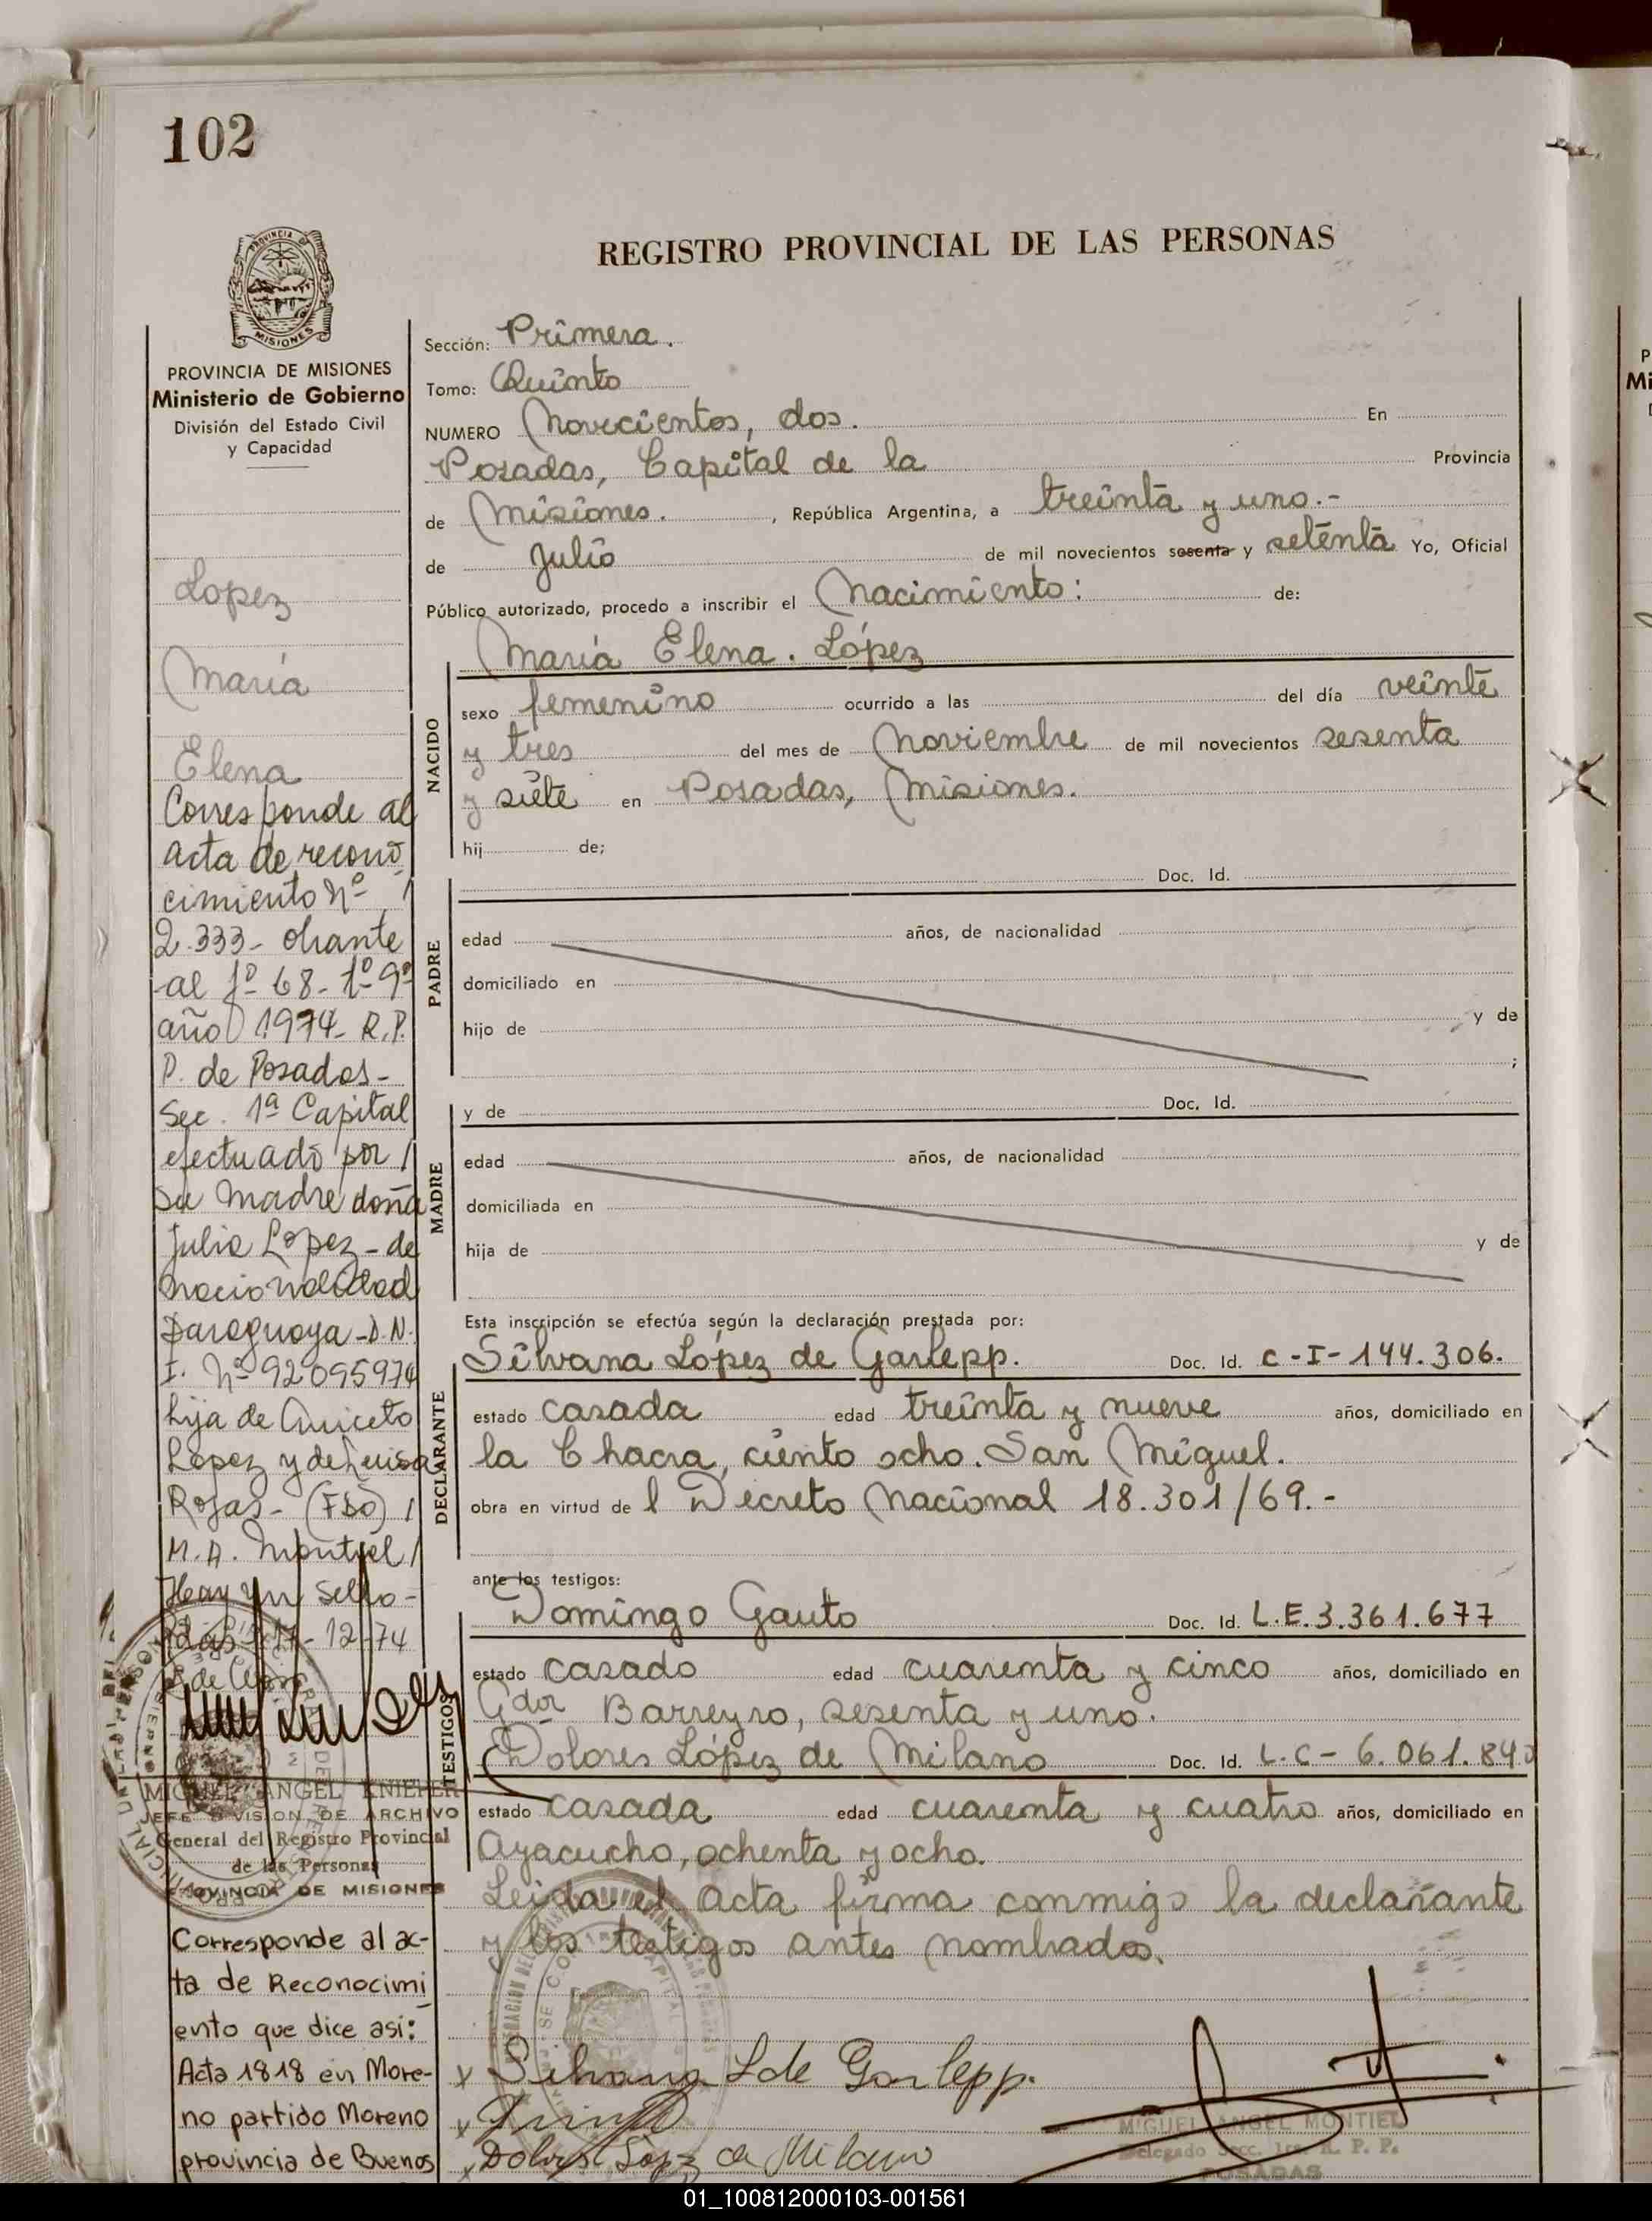 102
REGISTRO PROVINCIAL DE LAS PERSONAS
PROVINCIA DE
MISIONES
PROVINCIA DE MISIONES
Ministerio de Gobierno
División del Estado Civil
y Capacidad
Lopez
María
Elena
Corresponde al
acta de recono
cimiento Nº /
2.333- obrante
al fº 68- tº 9º
año 1974- R.P.
P. de Posadas-
Sec. 1ª Capital
efectuado por /
su madre doña
Julia Lopez - de
nacionalidad
Paraguaya - D.N.
I. Nº 92095974
hija de Aniceto
Lopez y de Luisa
Rojas- (FDO) /
M.A. Montiel /
Hay un Sello-
Pdas- 17-12-74
MIGUEL ANGEL KNIEFER
JEFE DIVISION DE ARCHIVO
General del Registro Provincial
de las Personas
PROVINCIA DE MISIONES
Corresponde al ac-
ta de Reconocimi
ento que dice asi:
Acta 1818 en More-
no partido Moreno
provincia de Buenos
Sección: Primera.
Tomo: Quinto
NUMERO Novecientos, dos. En
Posadas, Capital de la Provincia
de Misiones. , República Argentina, a treinta y uno.-
de Julio de mil novecientos sesenta y setenta Yo, Oficial
Público autorizado, procedo a inscribir el Nacimiento: de:
María Elena. López
NACIDO
sexo femenino ocurrido a las del día veinte
y tres del mes de Noviembre de mil novecientos sesenta
y siete en Posadas, Misiones.
hij de;
Doc. Id.
PADRE
edad años, de nacionalidad
domiciliado en
hijo de y de
;
y de Doc. Id.
MADRE
edad años, de nacionalidad
domiciliada en
hija de y de
Esta inscripción se efectúa según la declaración prestada por:
Silvana López de Garlepp. Doc. Id. C-I-144.306.
DECLARANTE
estado casada edad treinta y nueve años, domiciliado en
la Chacra, ciento ocho. San Miguel.
obra en virtud de l Decreto Nacional 18.301/69.-
ante los testigos:
Domingo Gauto Doc. Id. L.E.3.361.677
TESTIGOS
estado casado edad cuarenta y cinco años, domiciliado en
Gdor Barreyro, sesenta y uno.
Dolores López de Milano Doc. Id. L.C- 6.061.840
estado casada edad cuarenta y cuatro años, domiciliado en
Ayacucho, ochenta y ocho.
Leida el acta firma conmigo la declarante
y los testigos antes nombrados.
x Silvana L de Garlepp.
x
x Dolores López de Milano
MIGUEL ANGEL MONTIEL
Delegado Secc. 1ra. R. P. P.
POSADAS
01_100812000103-001561